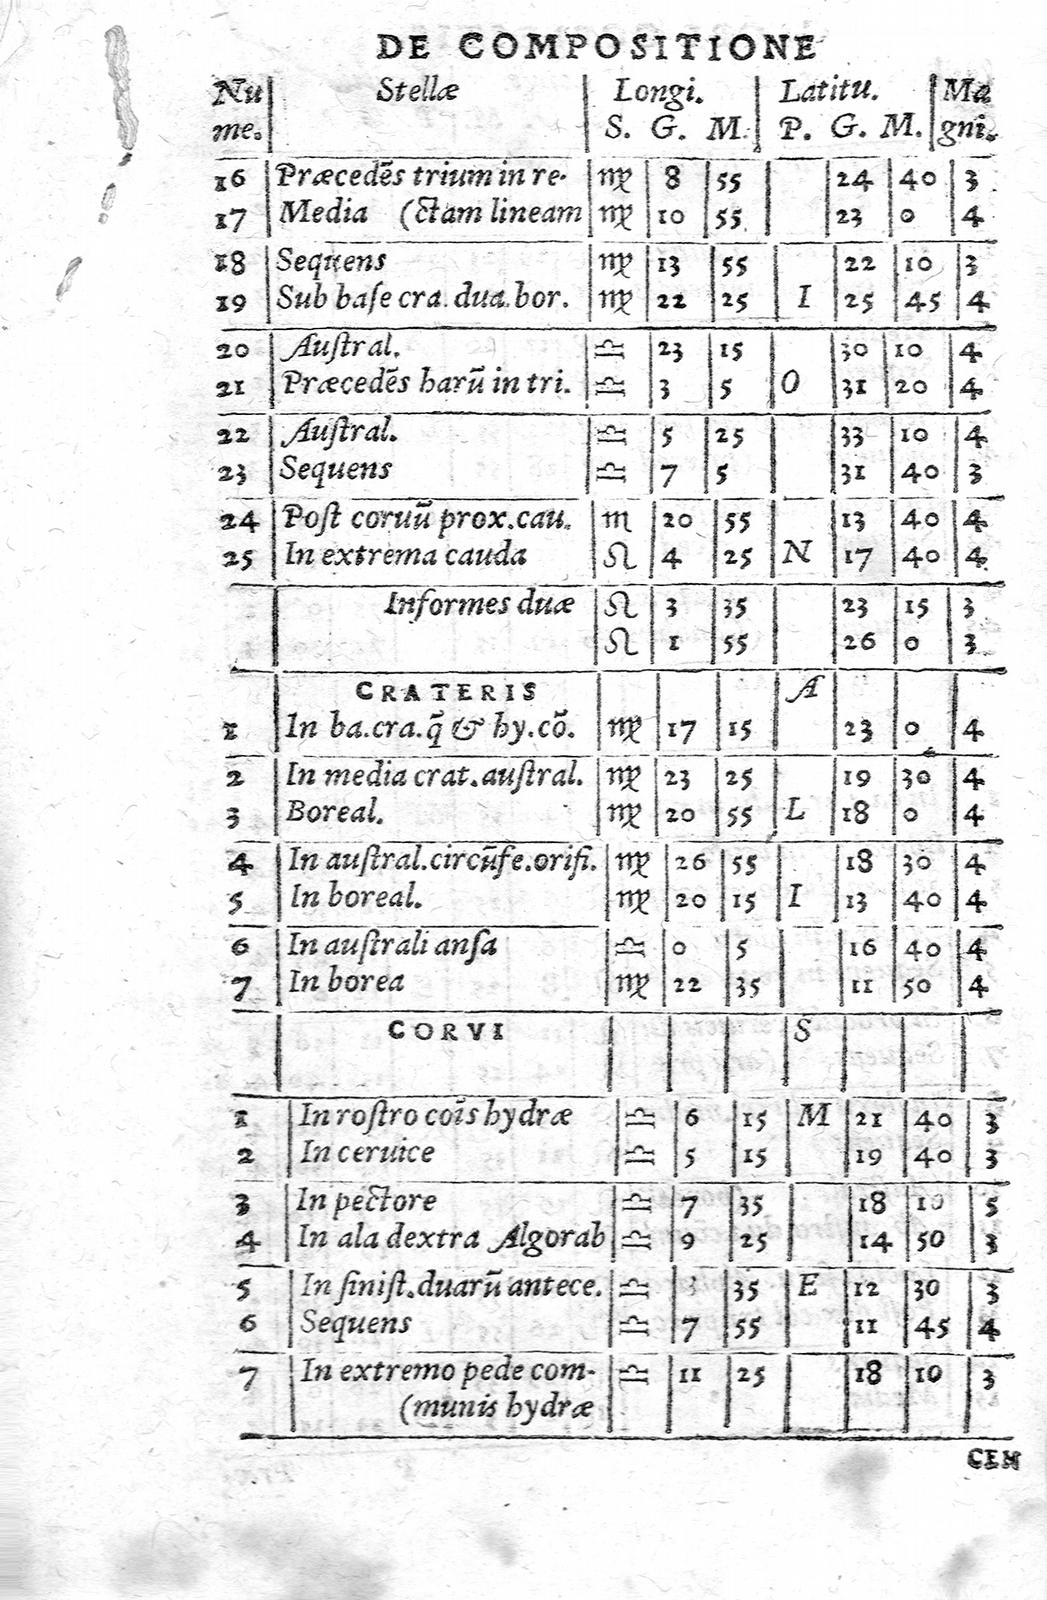 DE COMPOSITIONE
Nu Stellæ Longi. Latitu. Ma
me. S. G. M. P. G. M. gni.
16 Præcedẽs trium in re- ♍ 8 55 24 40 3
17 Media (ctam lineam ♍ 10 55 23 0 4
18 Sequens ♍ 13 55 22 10 3
19 Sub baſe cra. dua. bor. ♍ 22 25 I 25 45 4
20 Auſtral. ♎ 23 15 30 10 4
21 Præcedẽs harũ in tri. ♎ 3 5 O 31 20 4
22 Auſtral. ♎ 5 25 33 10 4
23 Sequens ♎ 7 5 31 40 3
24 Poſt coruũ prox. cau. ♏ 20 55 13 40 4
25 In extrema cauda ♌ 4 25 N 17 40 4
Informes duæ ♌ 3 35 23 15 3
♌ 1 55 26 0 3
CRATERIS A
1 In ba. cra. q̃ & hy. cõ. ♍ 17 15 23 0 4
2 In media crat. auſtral. ♍ 23 25 19 30 4
3 Boreal. ♍ 20 55 L 18 0 4
4 In auſtral. circũfe. orifi. ♍ 26 55 18 30 4
5 In boreal. ♍ 20 15 I 13 40 4
6 In auſtrali anſa ♎ 0 5 16 40 4
7 In borea ♍ 22 35 11 50 4
CORVI S
1 In roſtro cõis hydræ ♎ 6 15 M 21 40 3
2 In ceruice ♎ 5 15 19 40 3
3 In pectore ♎ 7 35 18 10 5
4 In ala dextra Algorab ♎ 9 25 14 50 3
5 In ſiniſt. duarũ antece. ♎ 3 35 E 12 30 3
6 Sequens ♎ 7 55 11 45 4
7 In extremo pede com- ♎ 11 25 18 10 3
(munis hydræ
CEN